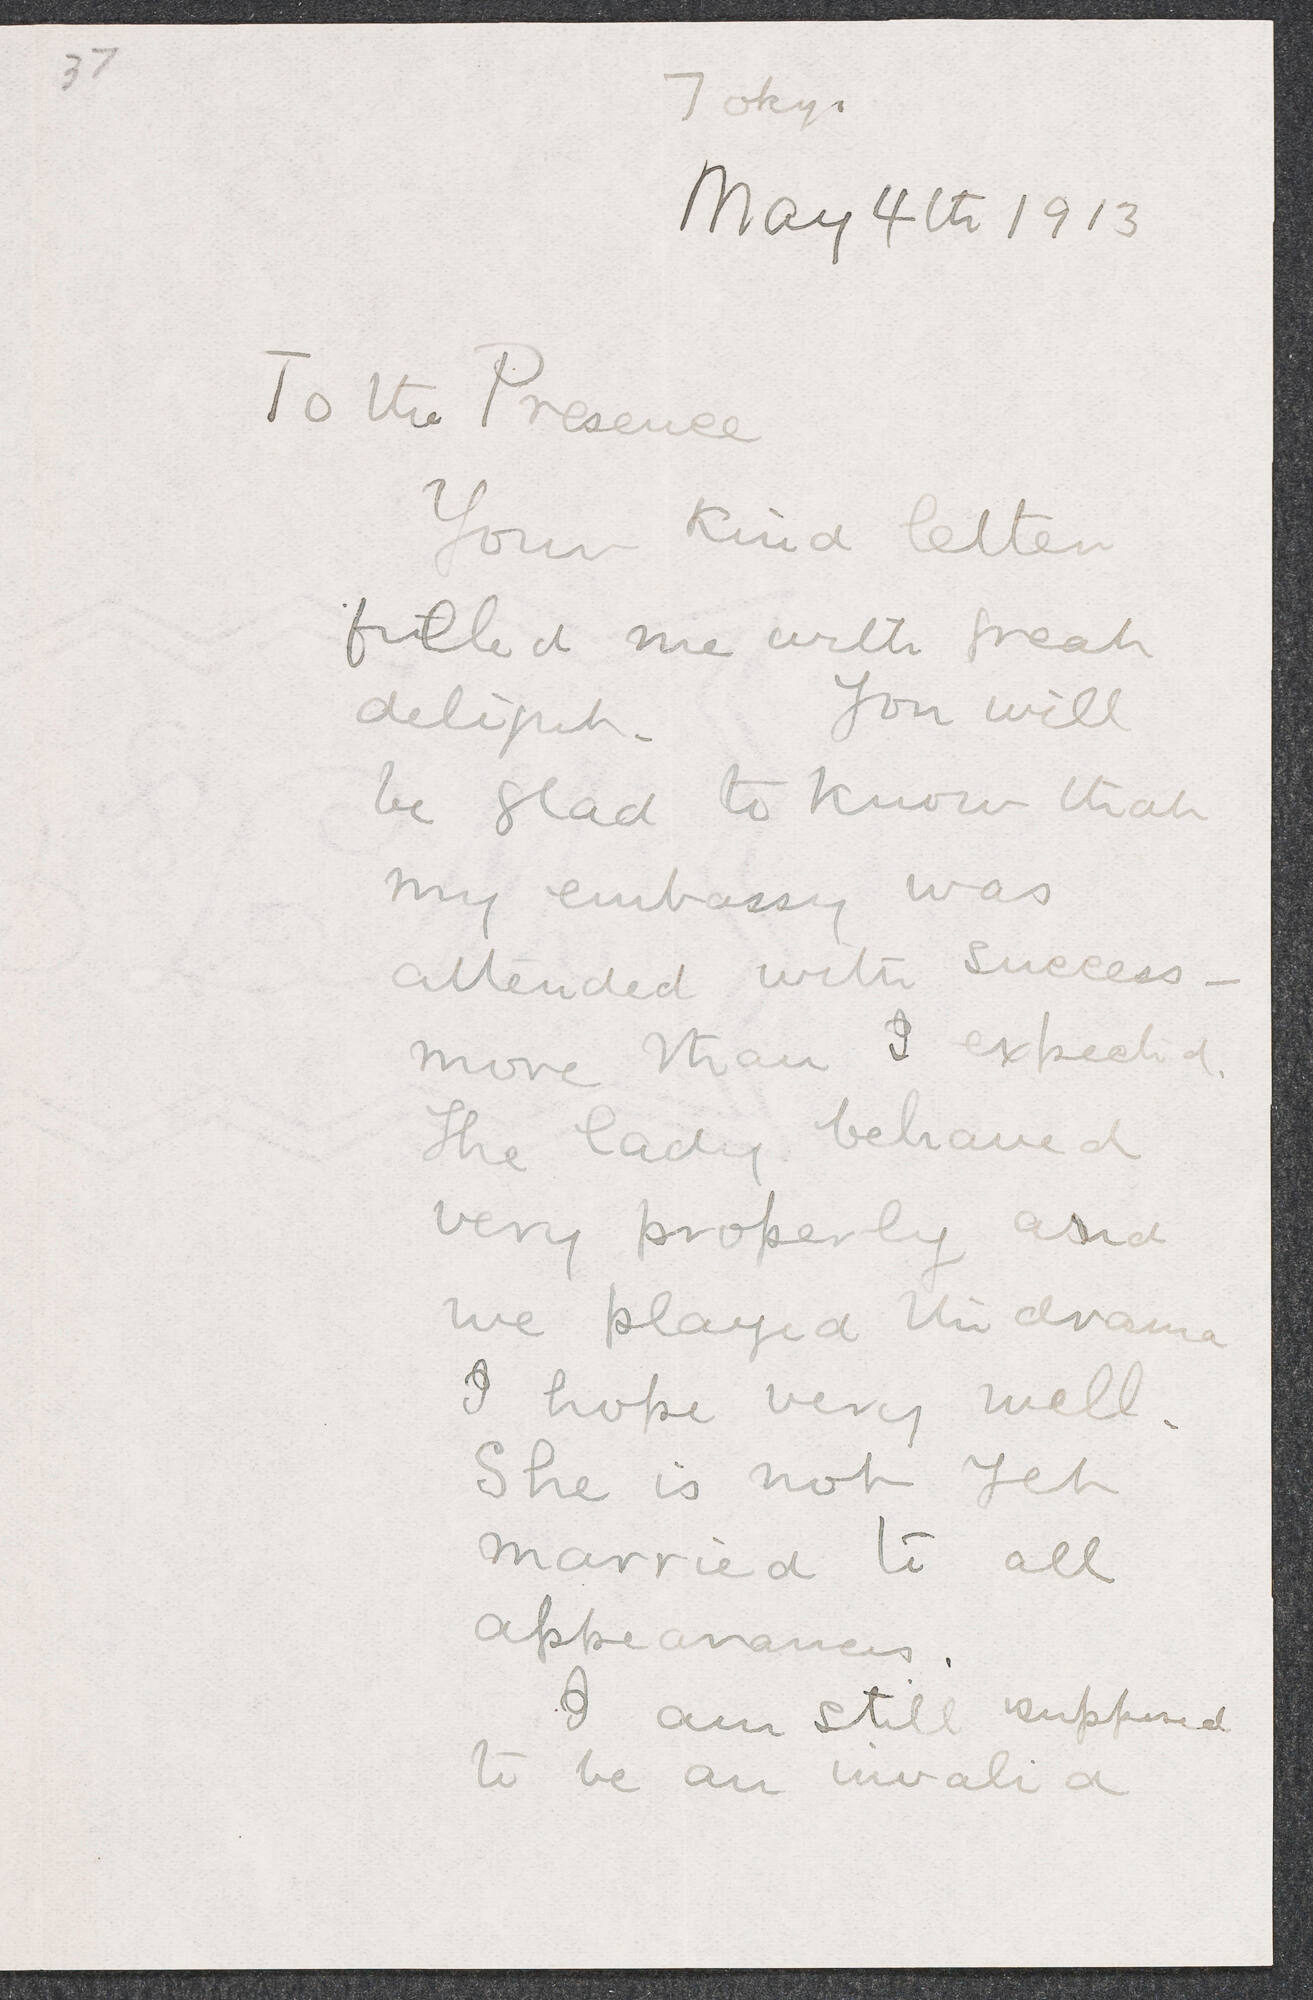 37
Tokyo
May 4th 1913
To the Presence
Your kind letter
filled me with great
delight. You will
be glad to know that
my embassy was
attended with success –
more than I expected.
The lady behaved
very properly and
we played the drama
I hope very well.
She is not yet
married to all
appearances.
I am still supposed
to be an invalid